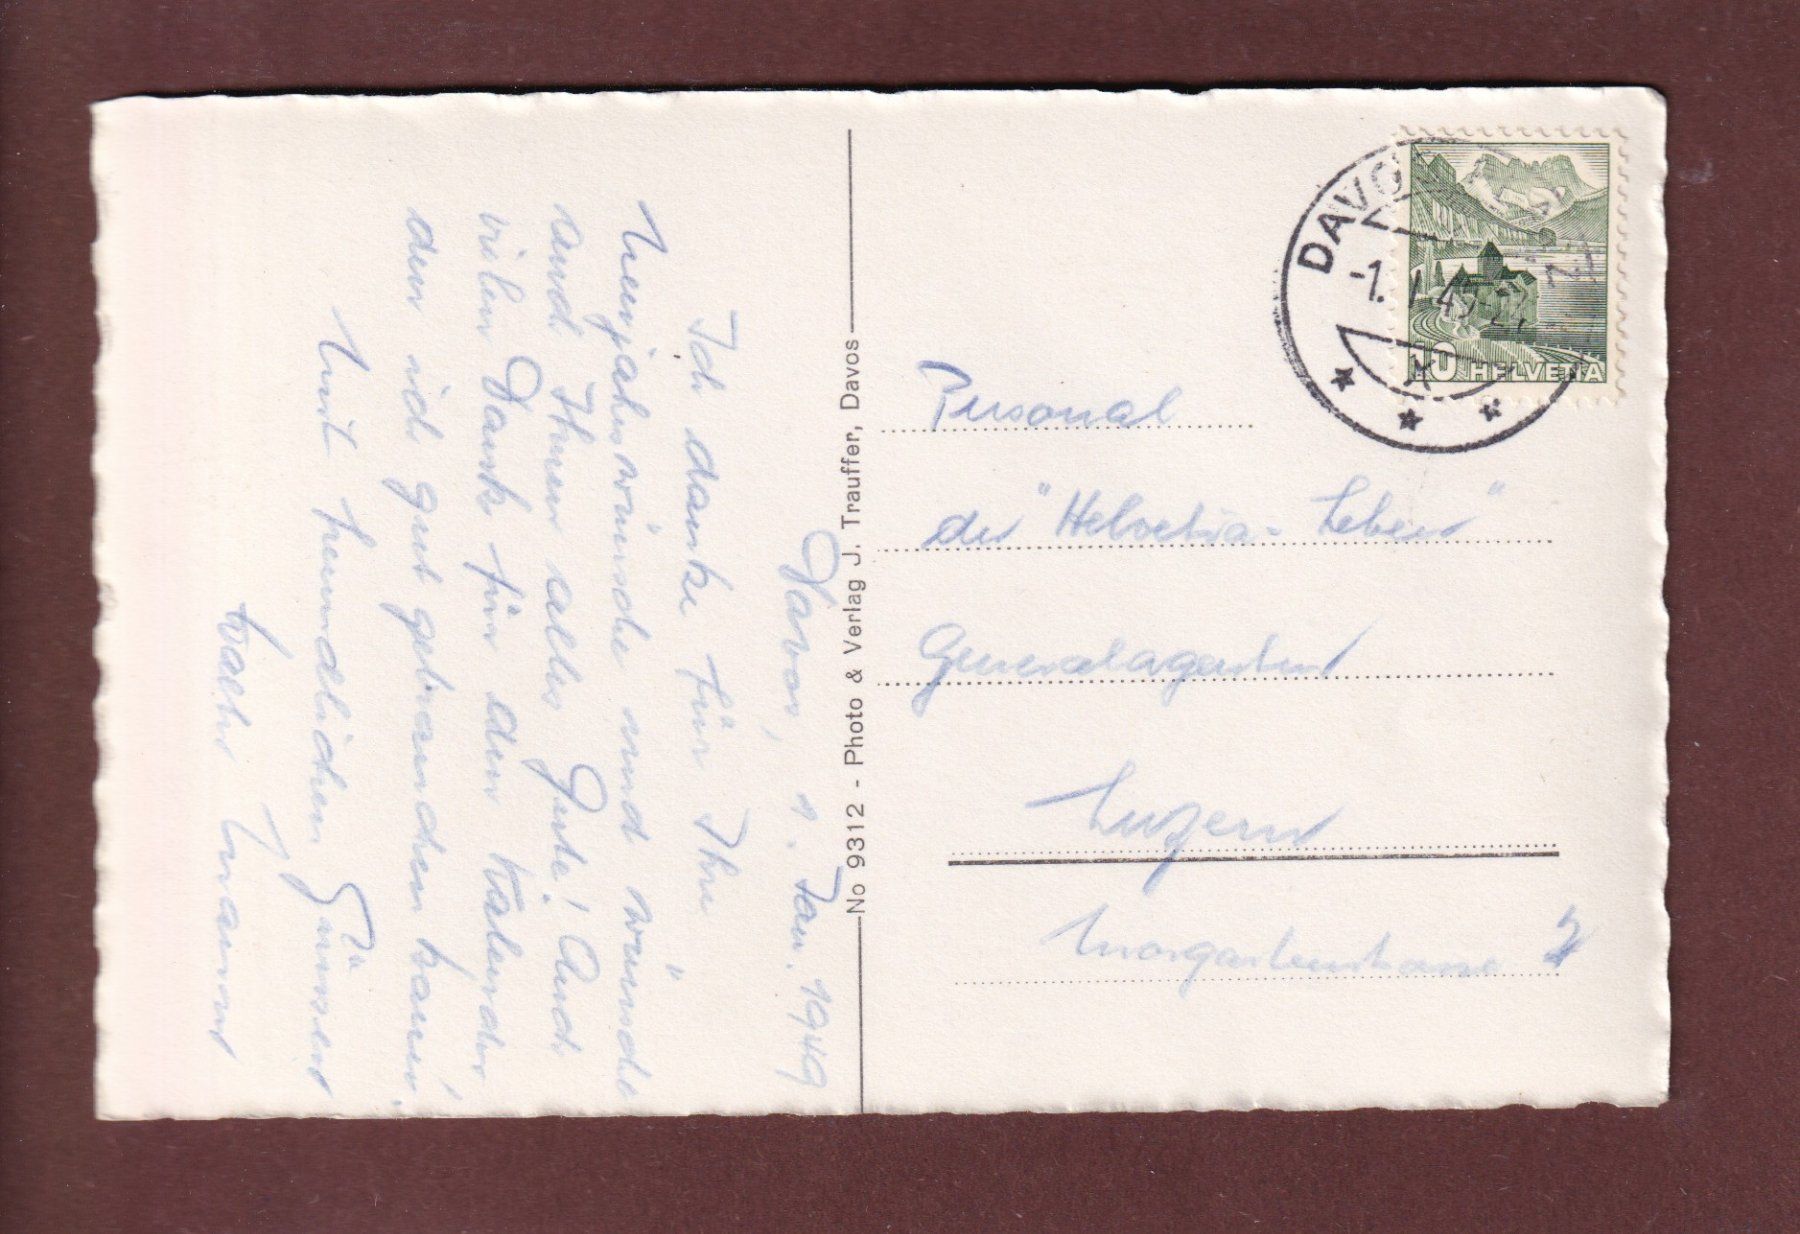 Davos, 1. Jan. 1949
Ich danke für Ihre
Neujahrswünsche und wünsche
auch Ihnen alles Gute! Auch
vielen Dank für den Kalender
den ich gut gebrauchen kann.
Mit freundlichen Grüssen
No 9312 - Photo & Verlag J. Trauffer, Davos
DAVOS
-1. I. 49
10 HELVETIA
Personal
der "Helvetia-Leben"
Generalagentur
Luzern
Morgartenstrasse 2